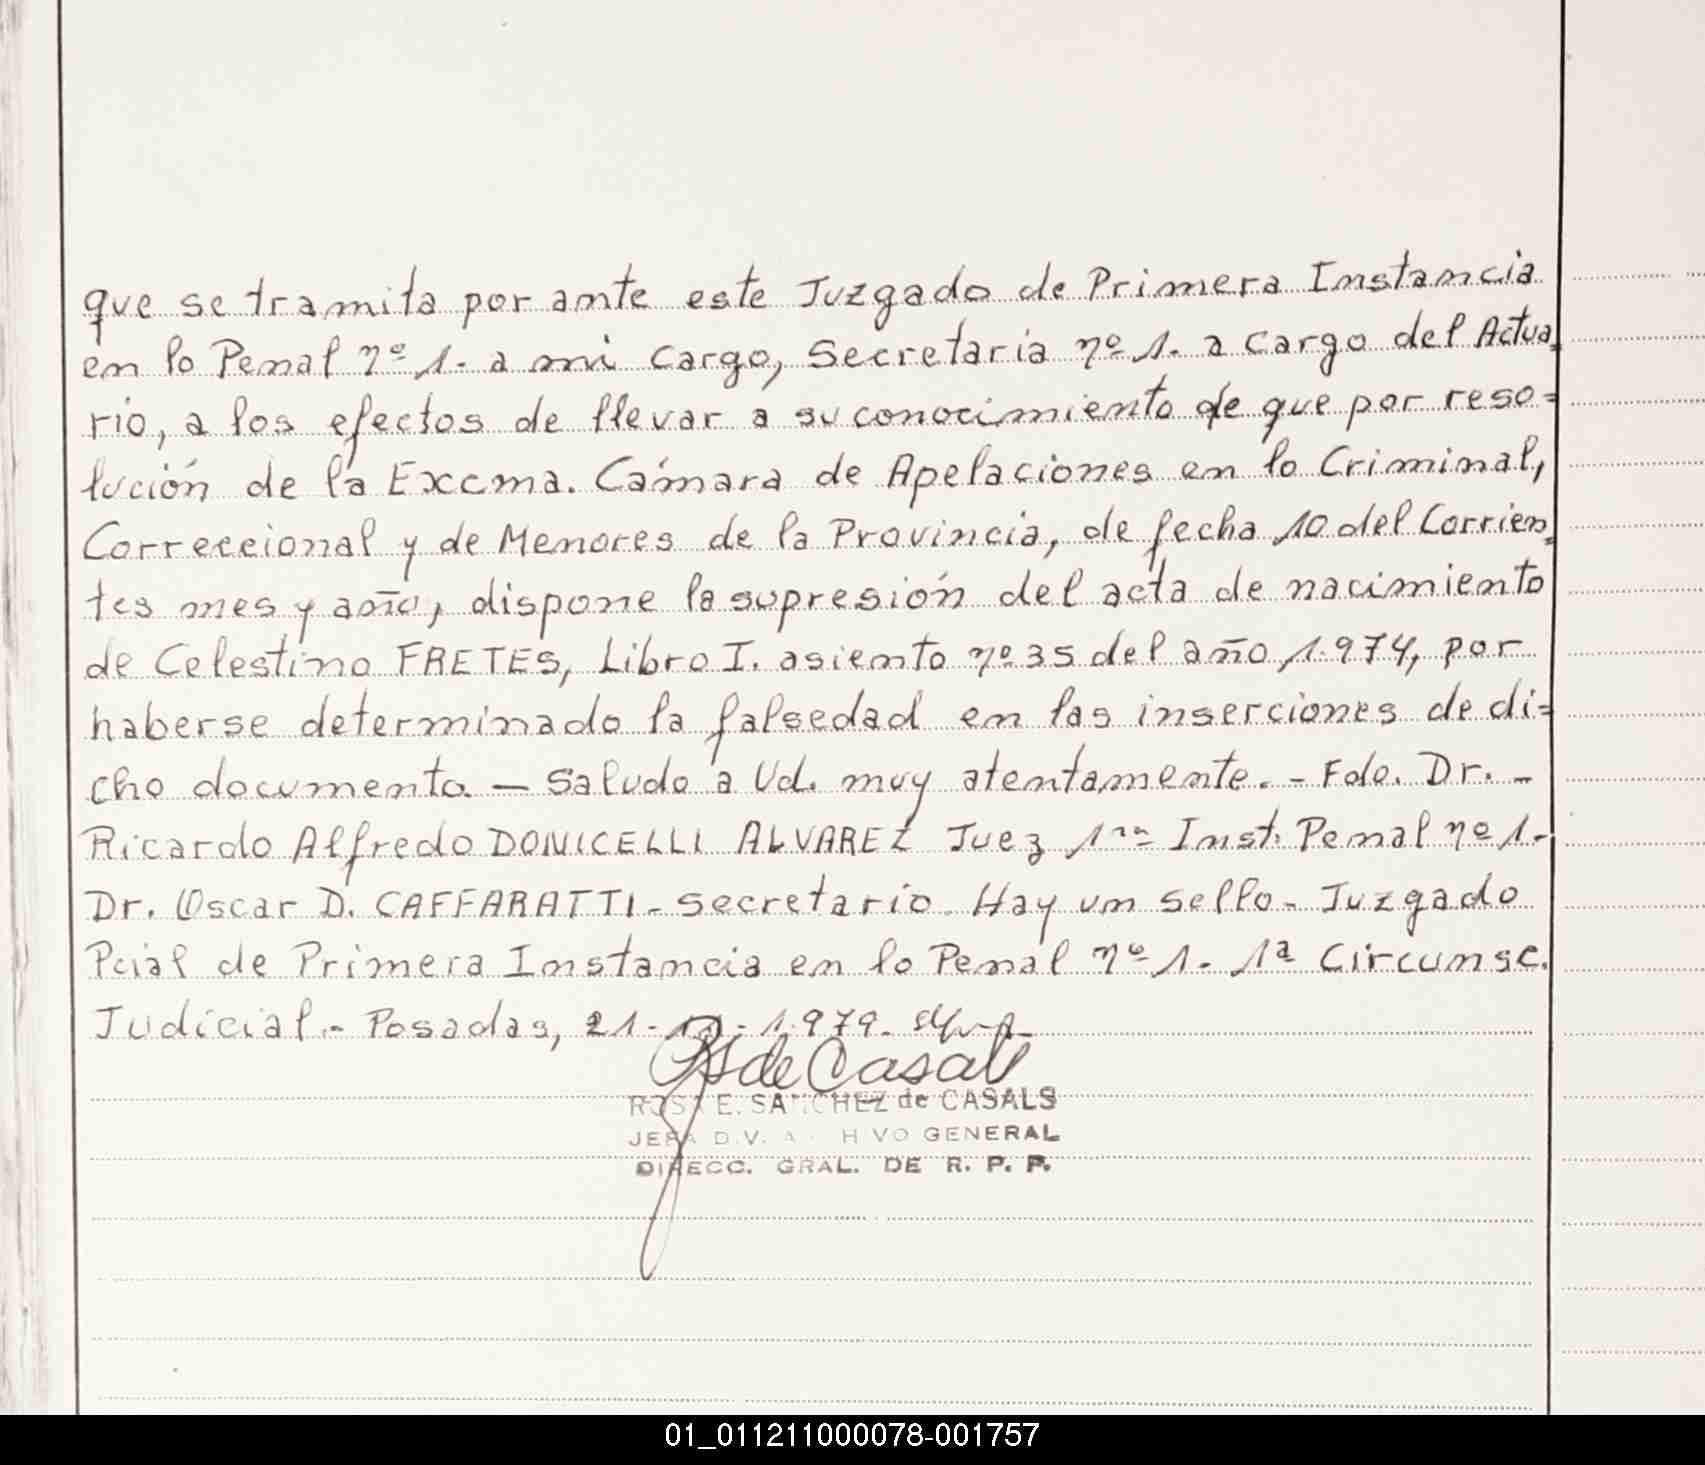 que se tramita por ante este Juzgado de Primera Instancia
en lo Penal nº 1. a mi cargo, Secretaria nº 1. a cargo del Actua
rio, a los efectos de llevar a su conocimiento de que por reso=
lución de la Excma. Cámara de Apelaciones en lo Criminal,
Correccional y de Menores de la Provincia, de fecha 10 del Corrien
tes mes y año, dispone la supresión del acta de nacimiento
de Celestino FRETES, Libro I. asiento nº 35 del año 1.974, por
haberse determinado la falsedad en las inserciones de di=
cho documento. — Saludo a Ud. muy atentamente. - Fdo. Dr. -
Ricardo Alfredo DONICELLI ALVAREZ Juez 1ra Inst. Penal nº 1.-
Dr. Oscar D. CAFFARATTI - Secretario. Hay un sello - Juzgado
Pcial de Primera Instancia en lo Penal nº 1. 1ª Circunsc.
Judicial.- Posadas, 21- -1.979.
de Casals
ROSA E. SANCHEZ de CASALS
JEFA DIV. ARCHIVO GENERAL
DIRECC. GRAL. DE R. P. P.
01_011211000078-001757